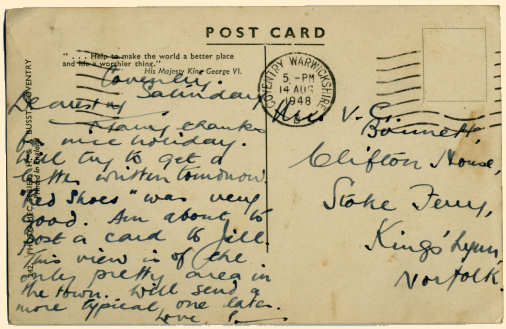 POST CARD
". . . Help to make the world a better place
and life a worthier thing."
His Majesty King George VI.
COVENTRY WARWICKSHIRE
5 - PM
14 AUG
1948
Coventry.
Saturday
Dearest
Many thanks
for nice holiday.
Will try to get a
letter written tomorrow.
"Red Shoes" was very
good. Am about to
post a card to Jill.
This view is of the
only pretty area in
the town. Will send a
more typical one later.
Love
Mrs. V. C.
Bonnett,
Clifton House,
Stoke Ferry,
King's Lynn,
Norfolk.
COVENTRY